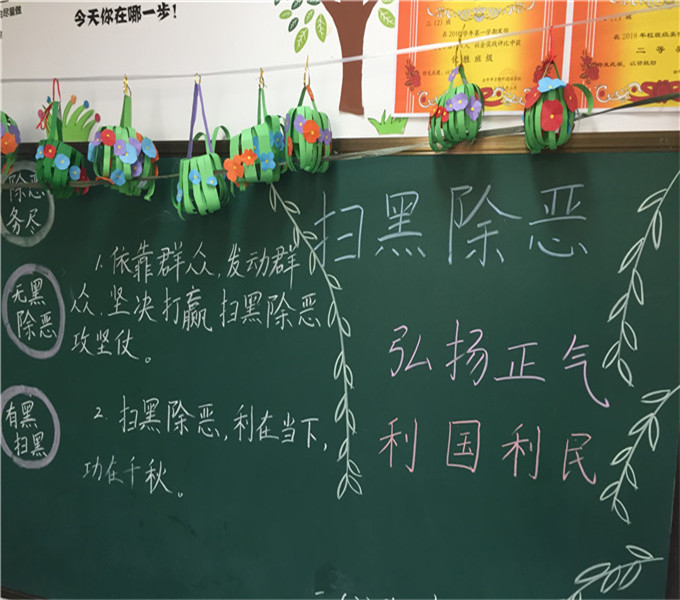 今天你在哪一步!
二(2)班
优胜班级
二等奖
扫黑除恶
弘扬正气
利国利民
除恶
务尽
无黑
除恶
有黑
扫黑
1.依靠群众,发动群
众,坚决打赢扫黑除恶
攻坚仗。
2.扫黑除恶,利在当下,
功在千秋。